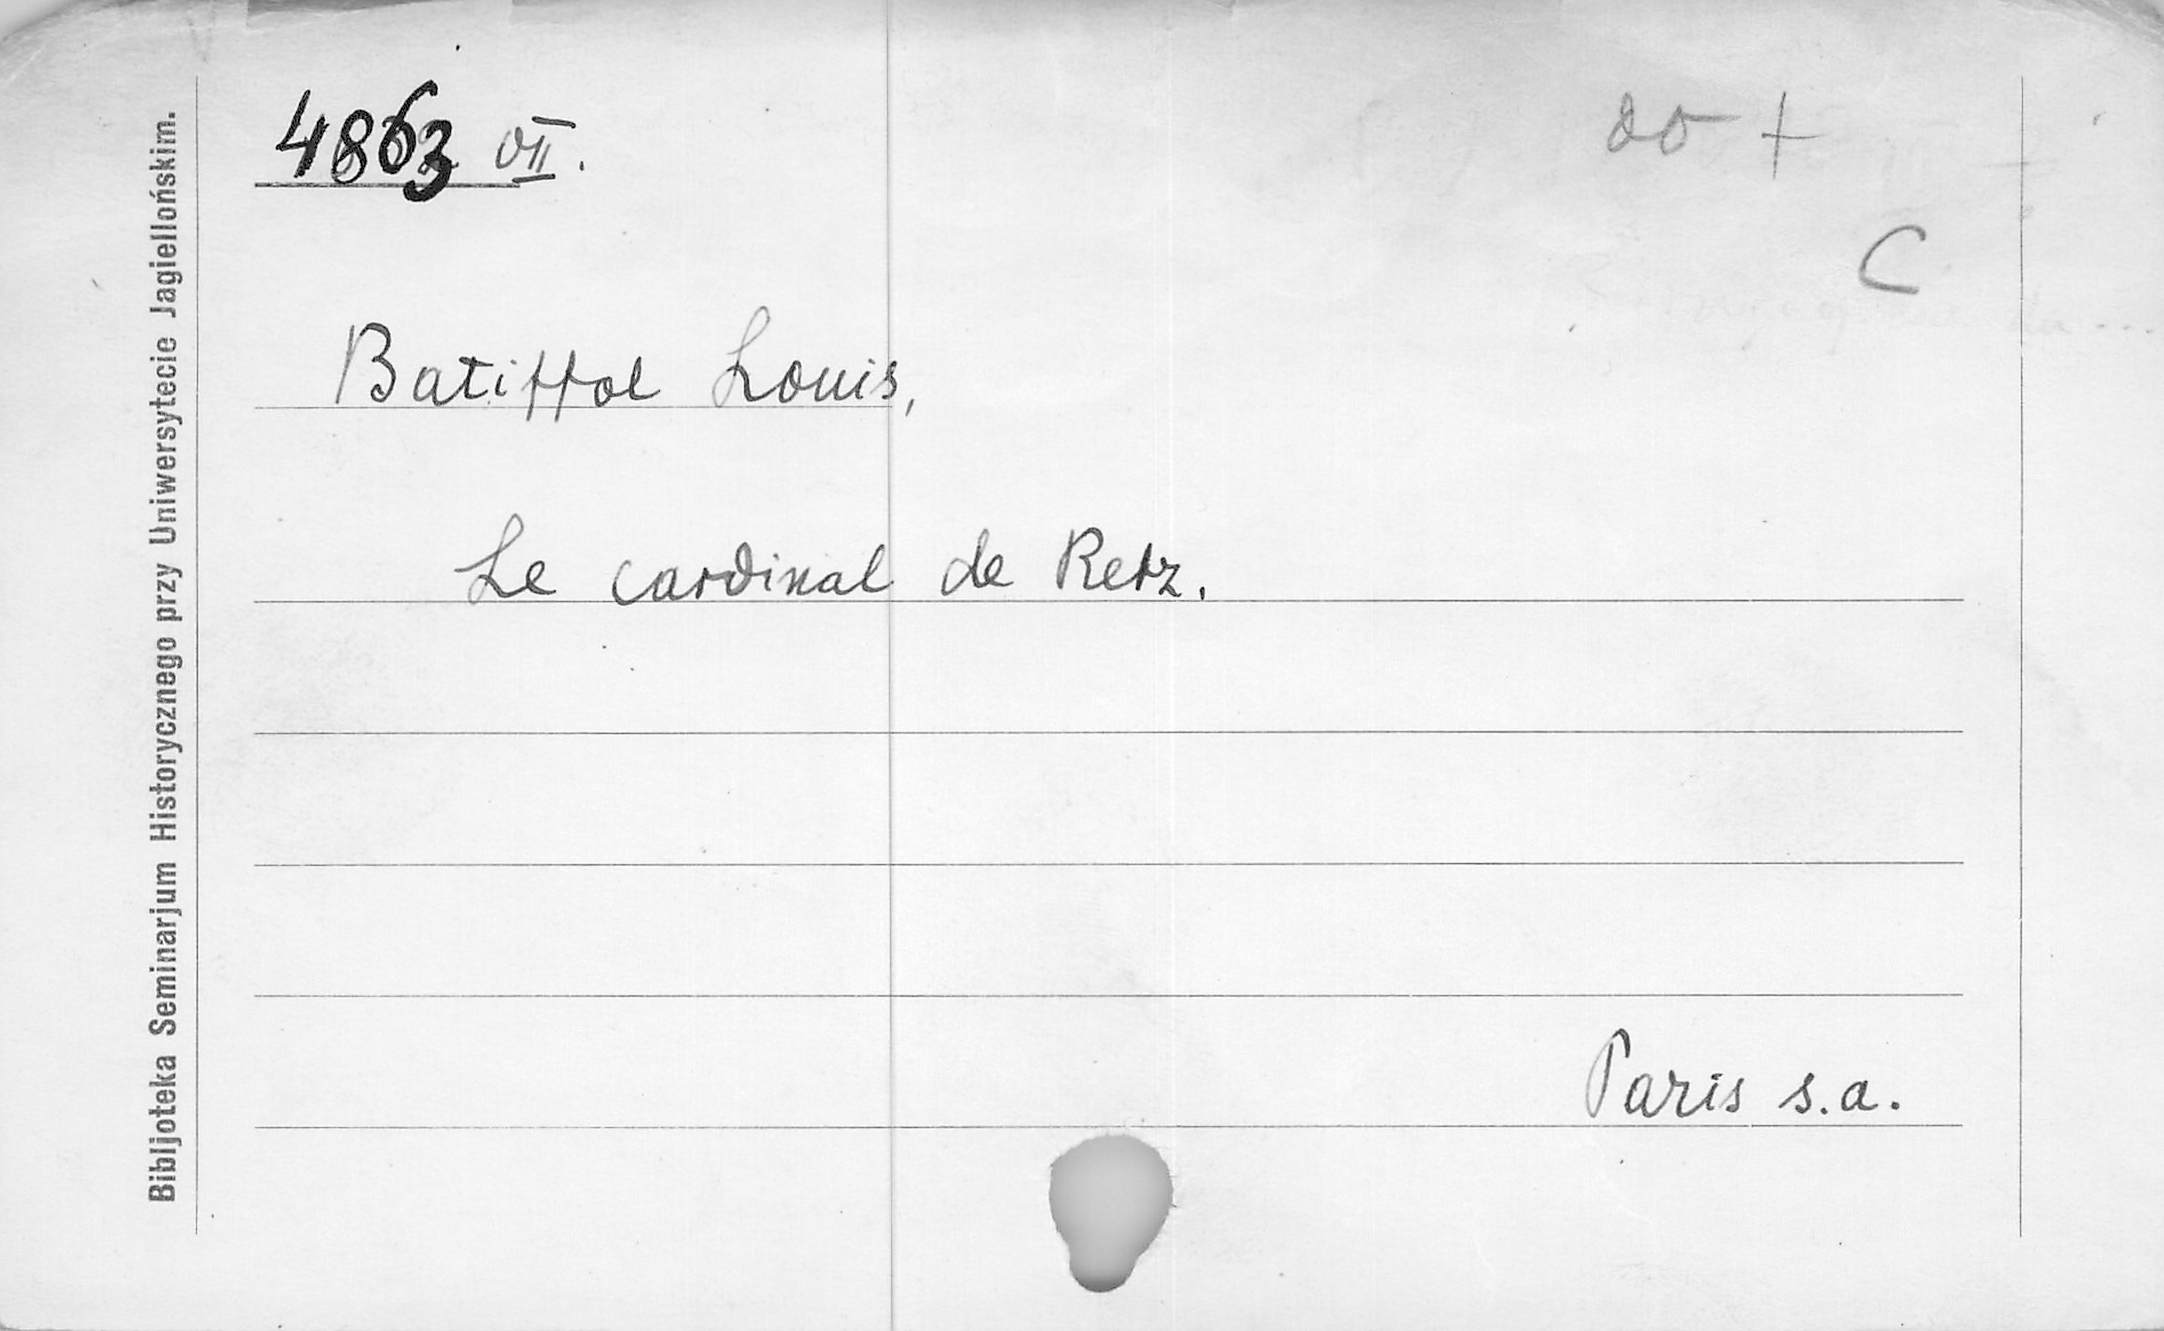 4863 VII.
do +
C
Batiffol Louis,
Le cardinal de Retz.
Paris s.a.
Bibljoteka Seminarjum Historycznego przy Uniwersytecie Jagiellońskim.